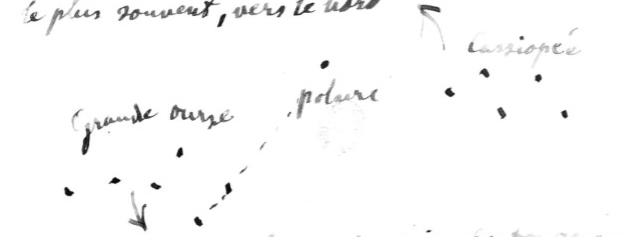 le plus souvent, vers le nord
Cassiopée
polaire
Grande ourse